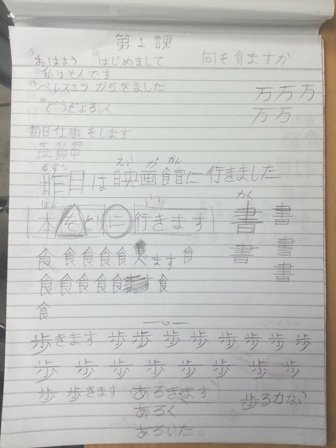 第1課
おはよう はじめまして 何を食ますか
私はそんです
ベレスエラ からきました
どうぞよろしく
万万万
万万
毎日仕事をします
さくじつ えいがかん
昨日は映画館に行きました
ほん い かく
本をとに行きます 書書
食食食食食 食ます 食 書書
食食食食食 食 書
食
歩きます 歩歩歩歩歩歩歩歩
歩歩歩歩歩歩歩
歩歩きます あるきます 歩る力ない
あるく
あるいた